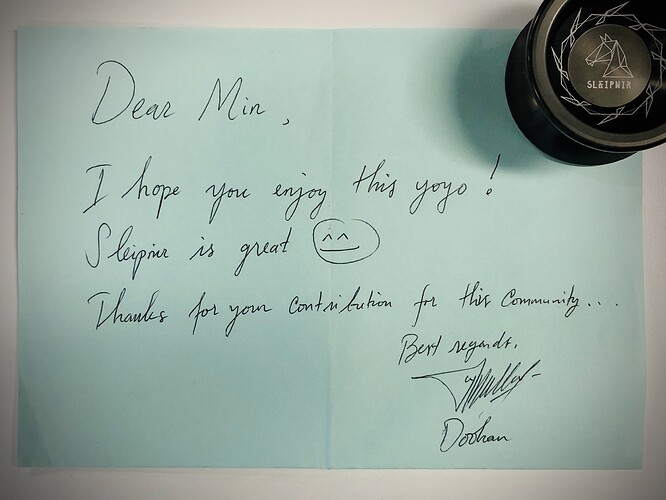 SLEIPNIR
Dear Min,
I hope you enjoy this yoyo!
Sleipnir is great
Thanks for your contribution for this Community...
Best regards.
Doohan